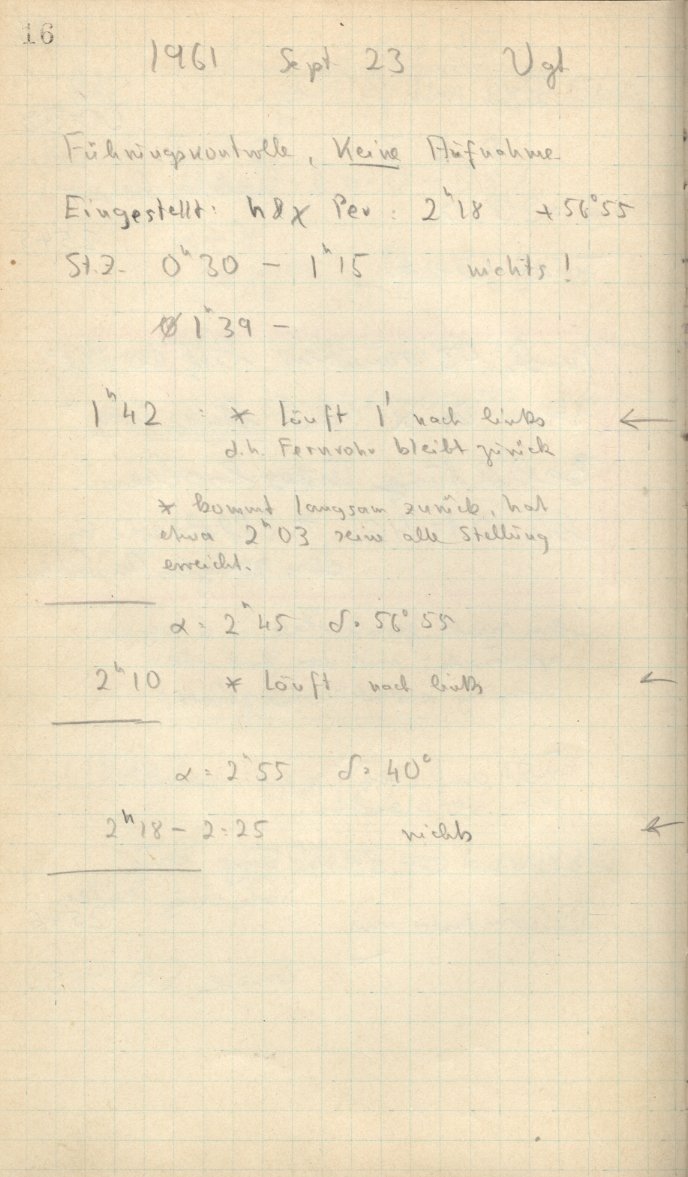 16
1961 Sept 23 Vgt
Führungskontrolle, Keine Aufnahme
Eingestellt: h & χ Per: 2ʰ18 +56°55
St.Z. 0ʰ30 – 1ʰ15 nichts!
1ʰ39 –
1ʰ42 : * läuft 1' nach links ←
d.h. Fernrohr bleibt zurück
* kommt langsam zurück, hat
etwa 2ʰ03 seine alte Stellung
erreicht.
α = 2ʰ45 δ = 56° 55
2ʰ10 * läuft nach links ←
α = 2ʰ55 δ = 40°
2ʰ18 – 2:25 nichts ←